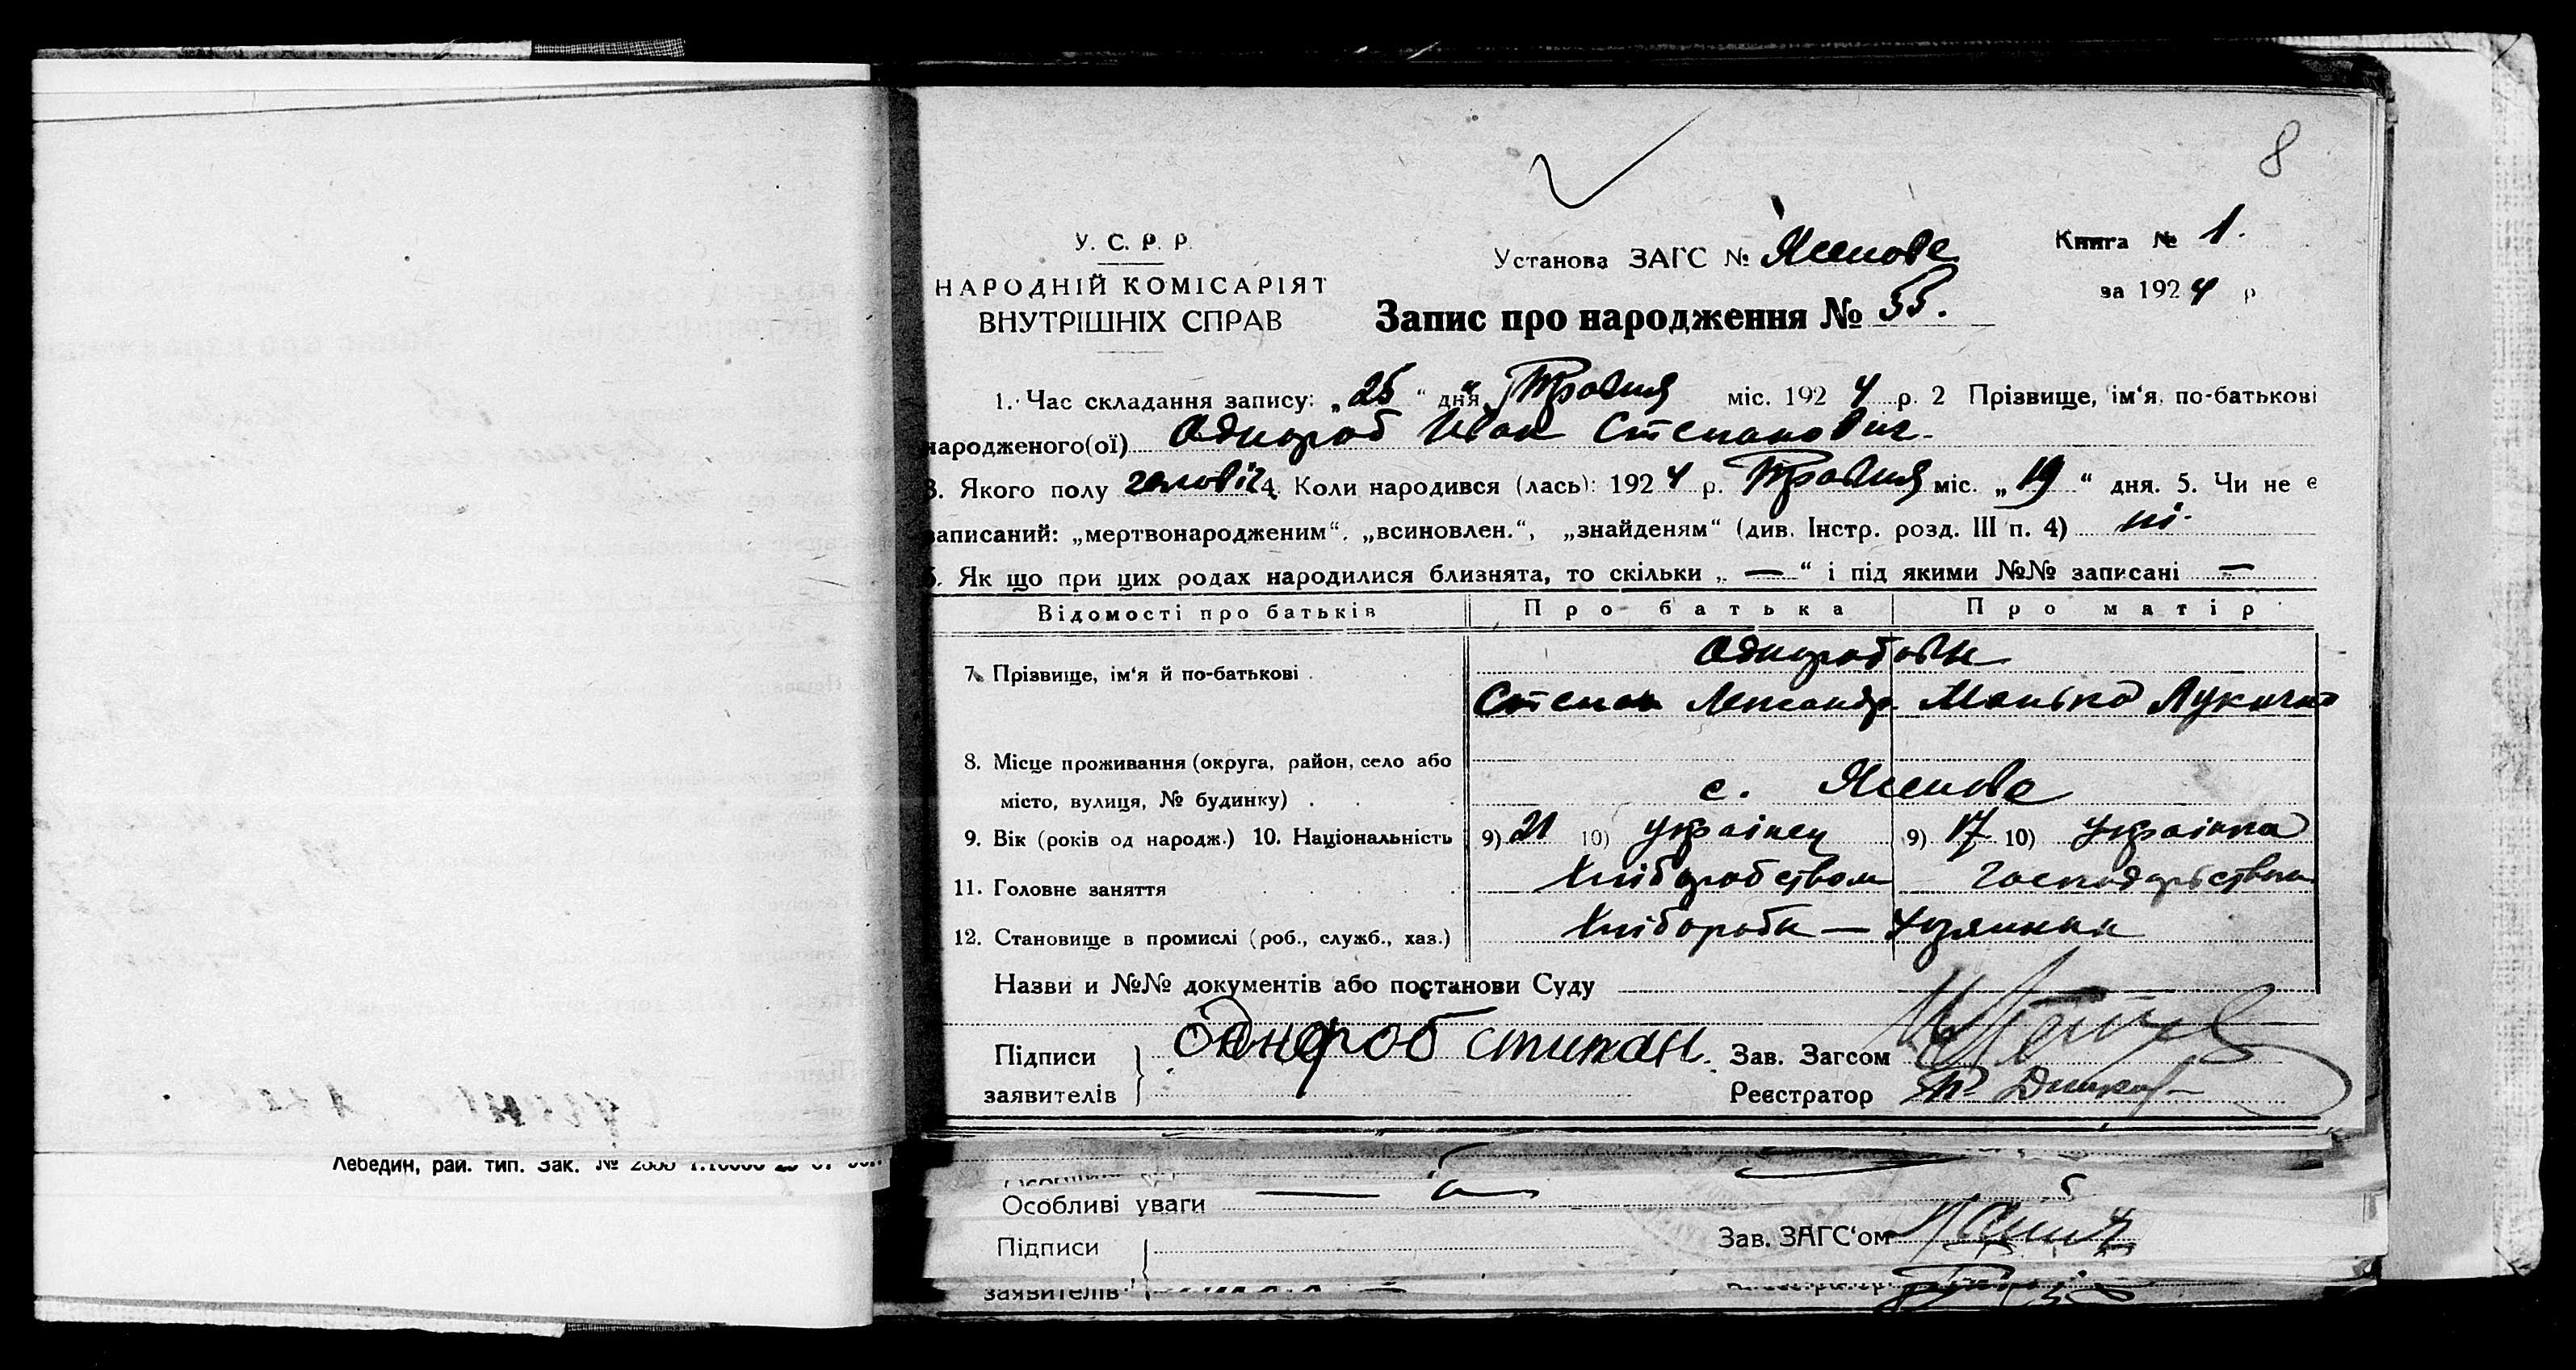 8
У. С. Р. Р.
НАРОДНІЙ КОМІСАРІЯТ
ВНУТРІШНІХ СПРАВ
Установа ЗАГС № Ясенове
Книга № 1.
за 1924 р
Запис про народження № 55.
1. Час складання запису: „25“ дня Травня міс. 1924 р. 2 Прізвище, ім‘я, по-батькові
народженого(ої) Однороб Іван Степанович.
3. Якого полу чоловіч 4. Коли народився (лась): 1924 р. Травня міс. „19“ дня. 5. Чи не є
записаний: „мертвонародженим“, „всиновлен.“, „знайденям“ (див. Інстр. розд. III п. 4) ні.
6. Як що при цих родах народилися близнята, то скільки „—“ і під якими №№ записані —
Відомості про батьків Про батька Про матір
7. Прізвище, ім‘я й по-батькові
Степан Лександр
8. Місце проживання (округа, район, село або
місто, вулиця, № будинку) с. Ясенове
9. Вік (років од народж.) 10. Національність 9) 21 10) українец 9) 17 10) Українка
11. Головне заняття Хліборобством Господарством
12. Становище в промислі (роб., служб., хаз.) Хлібороби —
Назви и №№ документів або постанови Суду
Підписи Однороб Стипан. Зав. Загсом
заявителів Реєстратор
Лебедин, рай. тип. Зак. №
Особливі уваги
Підписи Зав. ЗАГС‘ом
заявителів